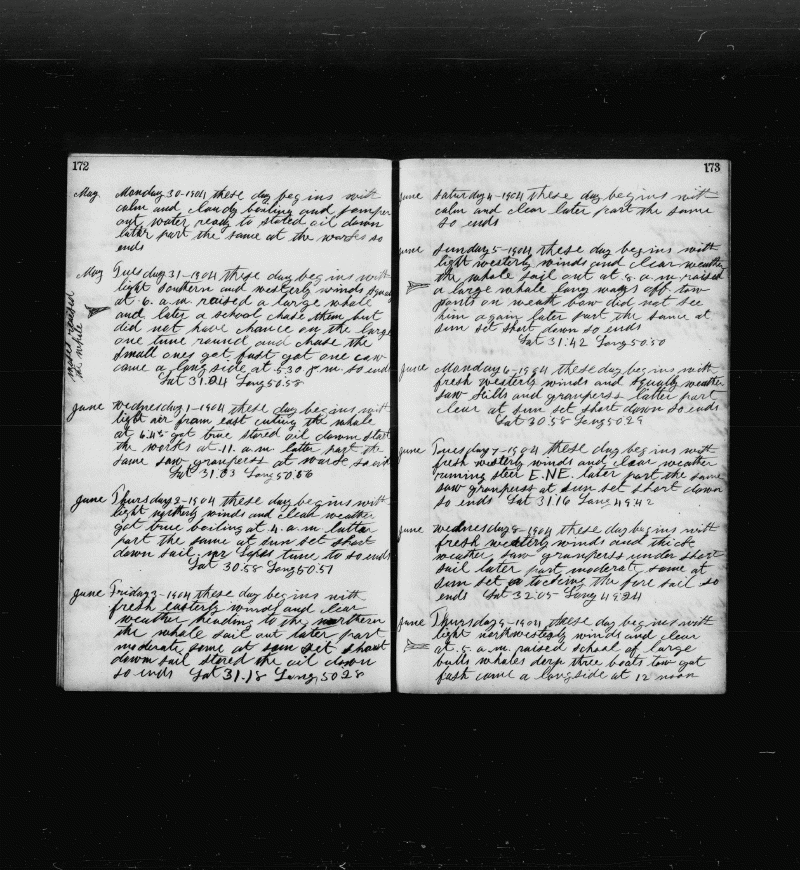 172
May Monday 30-1904 these day begins with
calm and cloudy boiling and
out water ready to stored oil down
later part the same at the works so
ends
May Tuesday 31-1904 these day begins with
light southern and westerly winds
at 6. a.m. raised a large whale
and later a school chase them but
did not have chance on the large
one tune round and chase the
small ones got fast got one cow
came a long side at 5-30 P.m. so ends
Lat 31.04 Long 50.58
raised
the whale
June Wednesday 1-1904 these day begins with
light air from east cuting the whale
at 6.45 got true stored oil down start
the works at 11. a.m. latter part the
same saw granperss at works, so ends
Lat 31.03 Long 50.56
June Thursday 2-1904 these day begins with
light winds and clear weather
got true boiling at 4. a.m latter
part the same at sun set short
down sail, mr Lopes tune to so ends
Lat 30.58 Long 50.57
June Friday 3-1904 these day begins with
fresh easterly winds and clear
weather heading to the northern
the whole sail out later part
moderate some at sun set short
down sail stored the oil down
so ends Lat 31.18 Long 50 28
173
June Saturday 4-1904 these day begins with
calm and clear later part the same
so ends
June Sunday 5-1904 these day begins with
light westerly winds and clear weather
the whole sail out at 8. a.m. raised
a large whale long ways off tow
points on weak bow did not see
him again later part the same at
sun set short down so ends
Lat 31.42 Long 50.50
June Monday 6-1904 these day begins with
fresh westerly winds and squaly weather
saw and granperss latter part
clear at sun set short down so ends
Lat 30.58 Long 50 29
June Tuesday 7-1904 these day begins with
fresh westerly winds and clear weather
runing steer E.NE. later part the same
saw granperss at sun set short down
so ends Lat 31.16 Long 49.42
June wednesday 8-1904 these day begins with
fresh westerly winds and thick
weather, saw granperss under short
sail later part moderate some at
sun set the fore sail so
ends Lat 32.05 Long 49 24
June Thursday 9-1904 these day begins with
light northwesterly winds and clear
at 5. a.m. raised school of large
bulls whales derp three boats tow got
fast came a longside at 12 noon